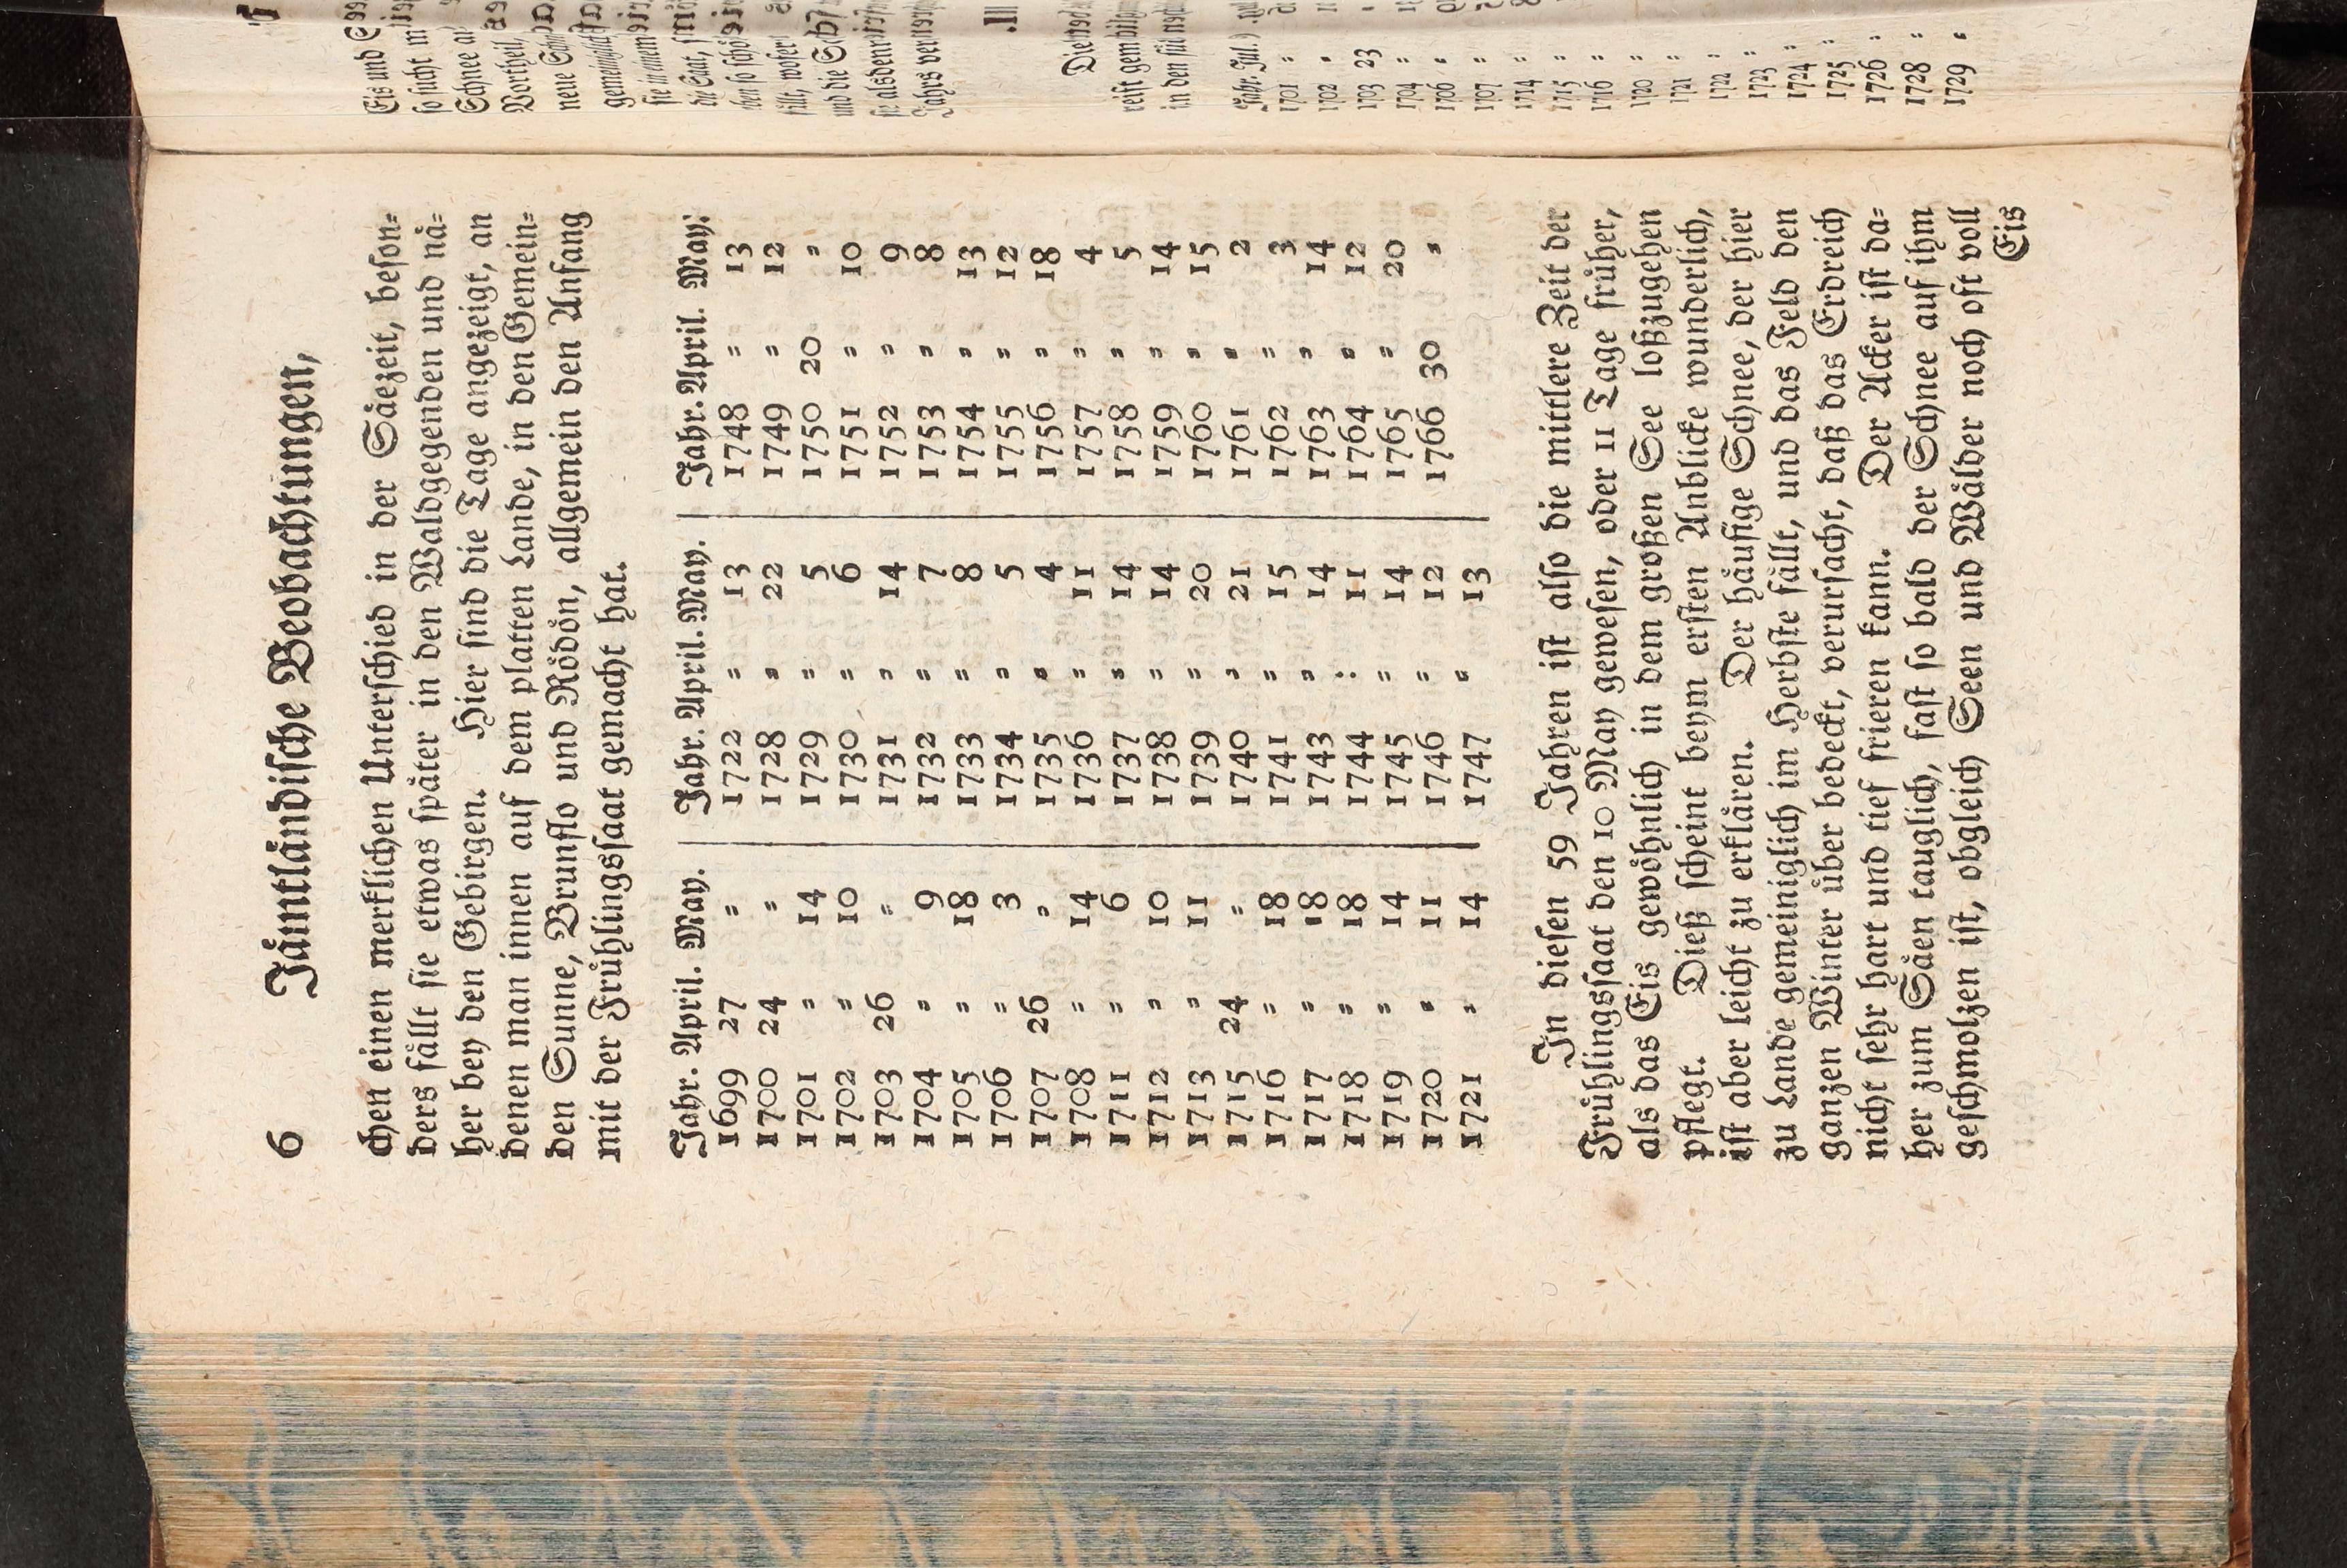 6 Jämtländische Beobachtungen,
chen einen merklichen Unterschied in der Säezeit, beson⸗
ders fällt sie etwas später in den Waldgegenden und nä⸗
her bey den Gebirgen. Hier sind die Tage angezeigt, an
denen man innen auf dem platten Lande, in den Gemein⸗
den Sunne, Brunflo und Rödön, allgemein den Anfang
mit der Frühlingssaat gemacht hat.
Jahr. April. May. Jahr. April. May. Jahr. April. May.
1699 27 〃 1722 〃 13 1748 〃 13
1700 24 〃 1728 〃 22 1749 〃 12
1701 〃 14 1729 〃 5 1750 20 〃
1702 〃 10 1730 〃 6 1751 〃 10
1703 26 〃 1731 〃 14 1752 〃 9
1704 〃 9 1732 〃 7 1753 〃 8
1705 〃 18 1733 〃 8 1754 〃 13
1706 〃 3 1734 〃 5 1755 〃 12
1707 26 〃 1735 〃 4 1756 〃 18
1708 〃 14 1736 〃 11 1757 〃 4
1711 〃 6 1737 〃 14 1758 〃 5
1712 〃 10 1738 〃 14 1759 〃 14
1713 〃 11 1739 〃 20 1760 〃 15
1715 24 〃 1740 〃 21 1761 〃 2
1716 〃 18 1741 〃 15 1762 〃 3
1717 〃 18 1743 〃 14 1763 〃 14
1718 〃 18 1744 : 11 1764 〃 12
1719 〃 14 1745 〃 14 1765 〃 20
1720 〃 11 1746 〃 12 1766 30 〃
1721 〃 14 1747 〃 13
In diesen 59 Jahren ist also die mittlere Zeit der
Frühlingssaat den 10 May gewesen, oder 11 Tage früher,
als das Eis gewöhnlich in dem großen See loßzugehen
pflegt. Dieß scheint beym ersten Anblicke wunderlich,
ist aber leicht zu erklären. Der häufige Schnee, der hier
zu Lande gemeiniglich im Herbste fällt, und das Feld den
ganzen Winter über bedeckt, verursacht, daß das Erdreich
nicht sehr hart und tief frieren kann. Der Acker ist da⸗
her zum Säen tauglich, fast so bald der Schnee auf ihm
geschmolzen ist, obgleich Seen und Wälder noch oft voll
Eis
Eis und
so sucht
Schnee
Vortheil,
neue
gemeiniglich
sie in einem
die Saat,
ben so
fällt, wofern
und die
sie alsdenn
Jahrs
III.
Die
reift
in den
Jahr. Jul.
1701 〃
1702 〃
1703 23
1704 〃
1706 〃
1707 〃
1714 〃
1715 〃
1716 〃
1720 〃
1721 〃
1722 〃
1723 〃
1724 〃
1725 〃
1726 〃
1728 〃
1729 〃